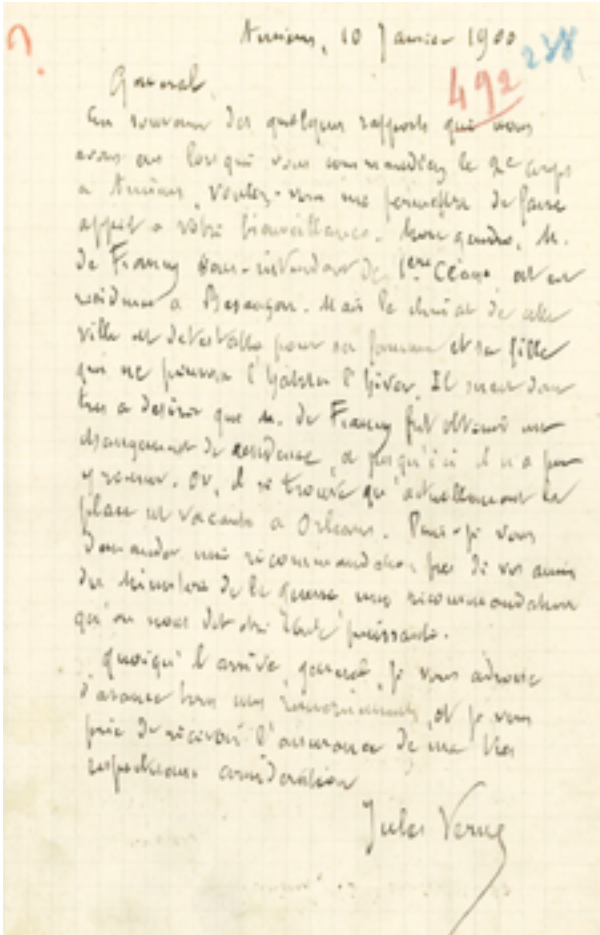 ?
Amiens, 10 Janvier 1900
238
492
Général,
En souvenir des quelques rapports que nous
avons eus lorsque vous commandiez le 2e corps
a Amiens, voulez-vous me permettre de faire
appel a votre bienveillance. Mon gendre, M.
de Francy sous-intendant de 1ere Classe, est en
residence a Besançon. Mais le climat de cette
ville est detestable pour sa femme et sa fille
qui ne peuvent l'habiter l'hiver. Il serait donc
tres a desirer que M. de Francy put obtenir un
changement de residence, et jusqu'ici il n'a pu
y reussir. Or, il se trouve qu'actuellement la
place est vacante a Orleans. Puis-je vous
demander une recommandation pres de vos amis
du Ministere de la guerre, une recommandation
qu'on nous dit etre toute puissante.
Quoiqu'il arrive, général, je vous adresse
d'avance tous mes remerciements, et je vous
prie de recevoir l'assurance de ma tres
respectueuse consideration
Jules Verne